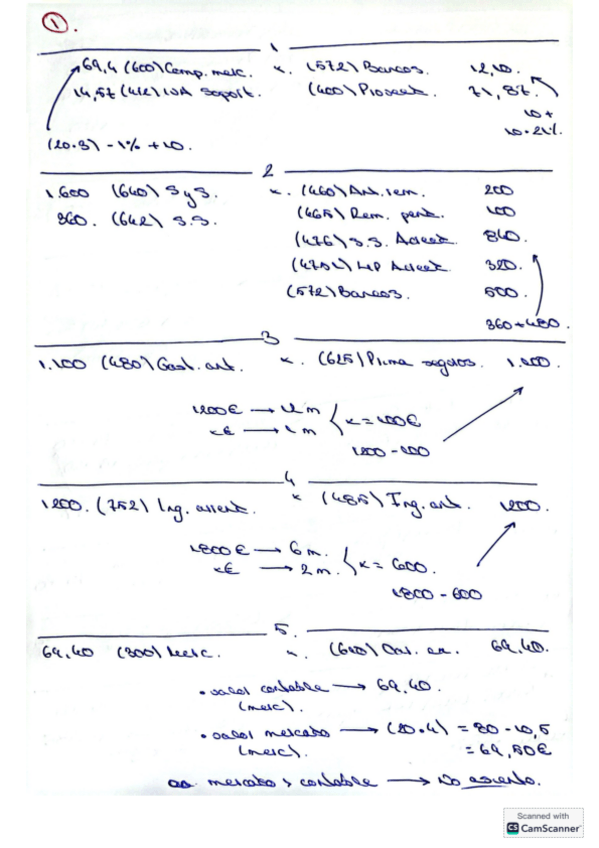 ①.
1
69,4 (600) Comp. merc. a. (572) Bancos. 12,10.
14,57 (472) IVA Soport. (400) Proveed. 71,87.
10 +
10·21%.
(20·3) - 1% + 10.
2
1.600 (640) SyS. a. (460) Ant. rem. 200
360. (642) S.S. (465) Rem. pent. 100
(476) S.S. Acreed. 840.
(4751) HP Acreed. 320.
(572) Bancos. 500.
360 + 480.
3
1.100 (480) Gast. ant. a. (625) Prima seguros. 1.100.
1200€ → 12 m
x€ → 1 m
x = 100€
1200 - 100
4
1200. (752) Ing. arrend. a (485) Ing. ant. 1200.
1800€ → 6 m.
x€ → 2 m.
x = 600.
1800 - 600
5.
69,40 (300) Merc. a. (610) 69,40.
• valor contable → 69,40.
(merc).
• valor mercado → (20·4) = 80 - 10,5
(merc). = 69,50€
mercado > contable → No asiento.
Scanned with
CS CamScanner